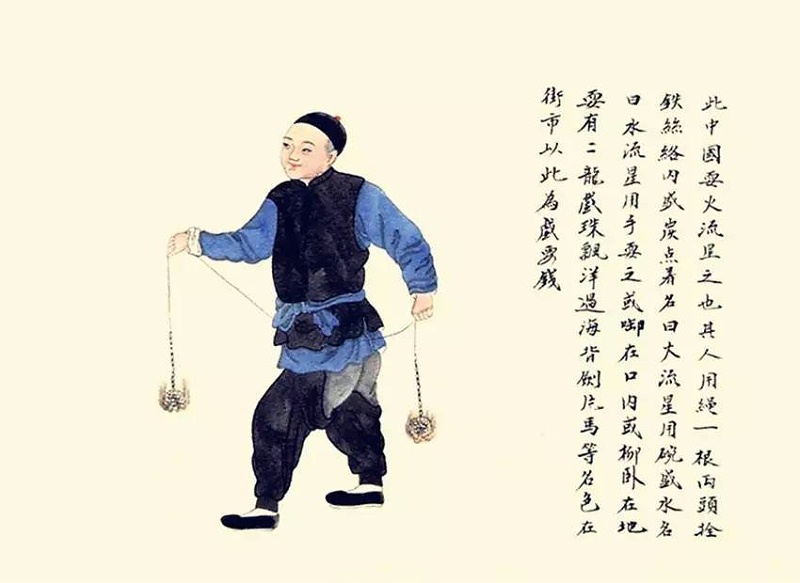 此中國耍火流星之也其人用繩一根両頭拴
鉄絲絡內盛炭点着名曰火流星用碗盛水名
曰水流星用手耍之或啣在口内或仰卧在地
耍有二龍戲珠飄洋過海背劍片馬等名色在
街市以此為戲耍錢